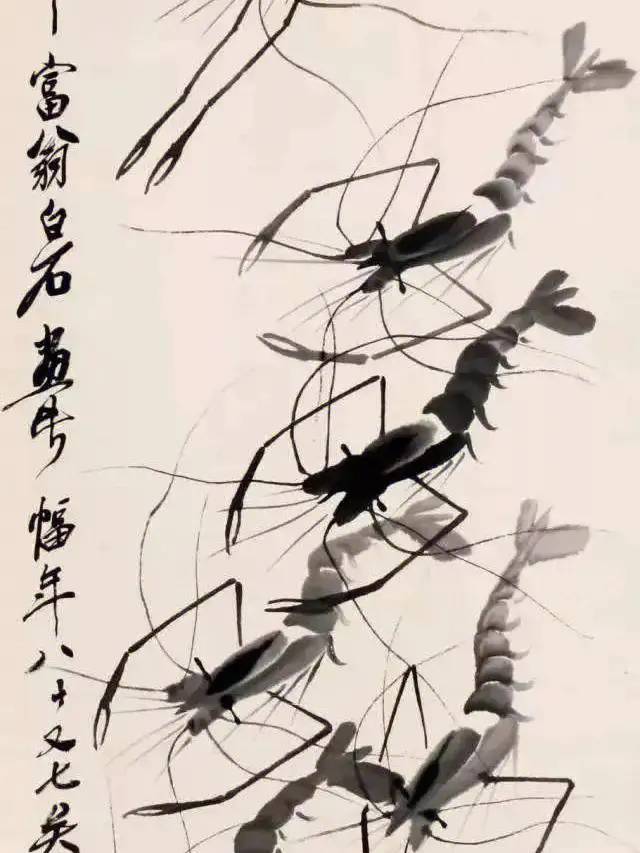 富翁白石畫幅年八十又七矣